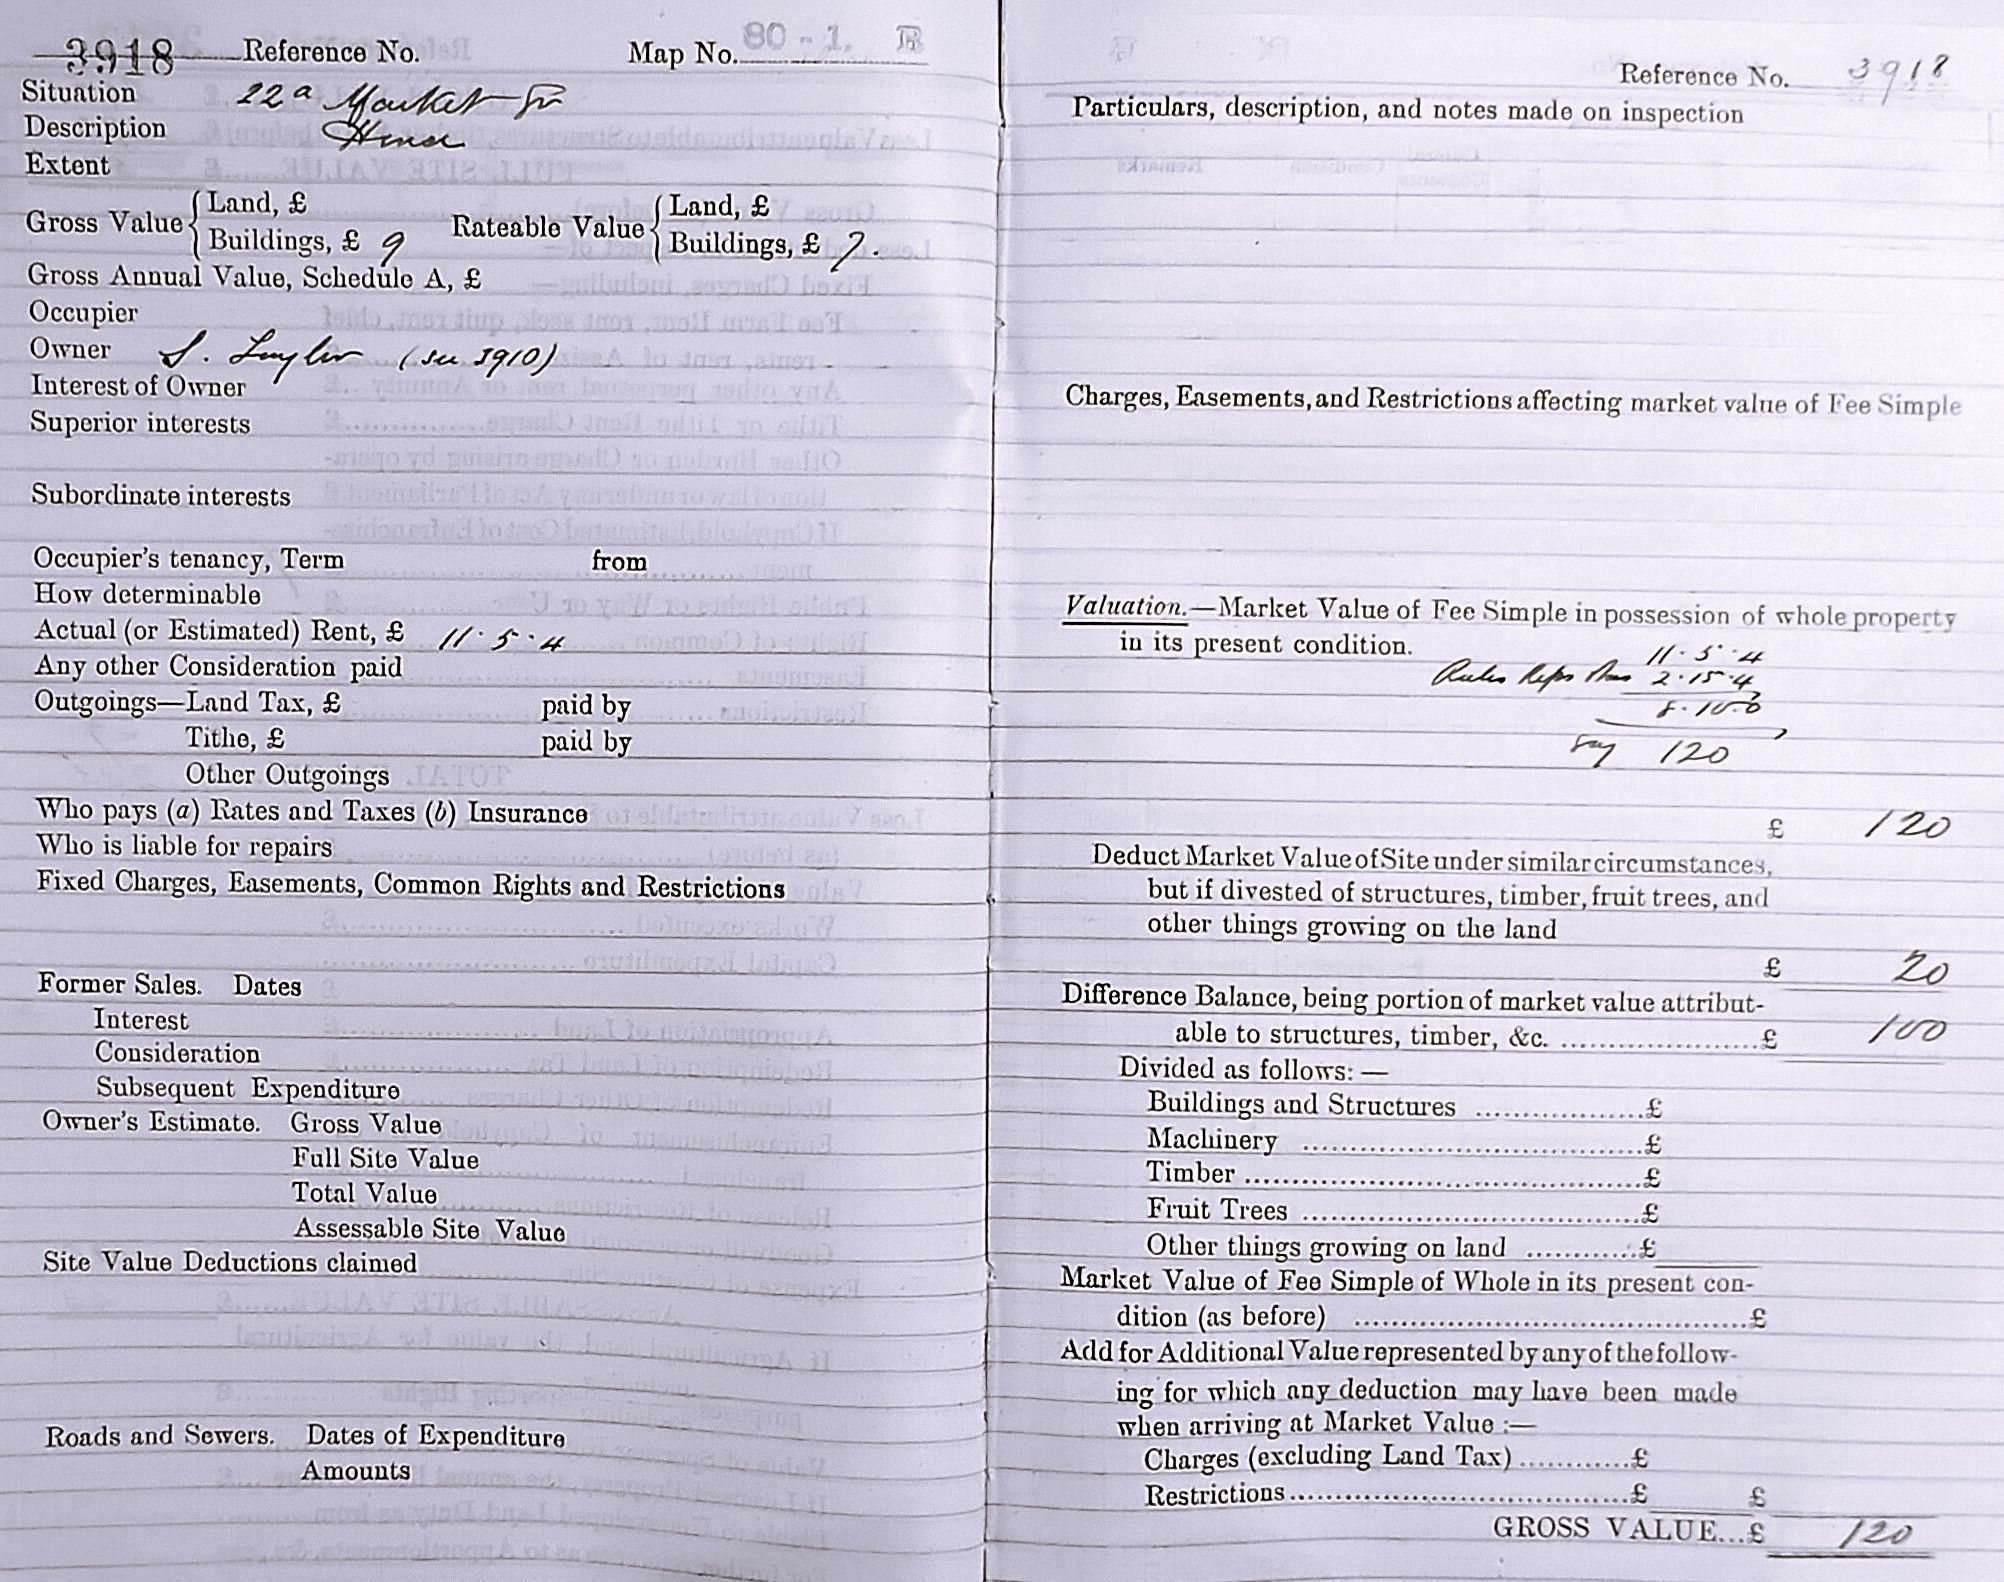 3918 Reference No. Map No. 80-1. B
Situation 22a Market St
Description House
Extent
Gross Value { Land, £
Buildings, £ 9
Rateable Value { Land, £
Buildings, £ 7.
Gross Annual Value, Schedule A, £
Occupier
Owner S. (see 3910)
Interest of Owner
Superior interests
Subordinate interests
Occupier's tenancy, Term from
How determinable
Actual (or Estimated) Rent, £ 11·5·4
Any other Consideration paid
Outgoings—Land Tax, £ paid by
Tithe, £ paid by
Other Outgoings
Who pays (a) Rates and Taxes (b) Insurance
Who is liable for repairs
Fixed Charges, Easements, Common Rights and Restrictions
Former Sales. Dates
Interest
Consideration
Subsequent Expenditure
Owner's Estimate. Gross Value
Full Site Value
Total Value
Assessable Site Value
Site Value Deductions claimed
Roads and Sewers. Dates of Expenditure
Amounts
Reference No. 3918
Particulars, description, and notes made on inspection
Charges, Easements, and Restrictions affecting market value of Fee Simple
Valuation.—Market Value of Fee Simple in possession of whole property
in its present condition.
11·5·4
Rates Reps Ins 2·15·4
8·10·0
Say 120
£ 120
Deduct Market Value of Site under similar circumstances,
but if divested of structures, timber, fruit trees, and
other things growing on the land
£ 20
Difference Balance, being portion of market value attribut-
able to structures, timber, &c. ........................£ 100
Divided as follows:—
Buildings and Structures ..................£
Machinery ......................................£
Timber ............................................£
Fruit Trees ......................................£
Other things growing on land ............£
Market Value of Fee Simple of Whole in its present con-
dition (as before) ............................................£
Add for Additional Value represented by any of the follow-
ing for which any deduction may have been made
when arriving at Market Value :—
Charges (excluding Land Tax) ............£
Restrictions......................................£ £
GROSS VALUE...£ 120